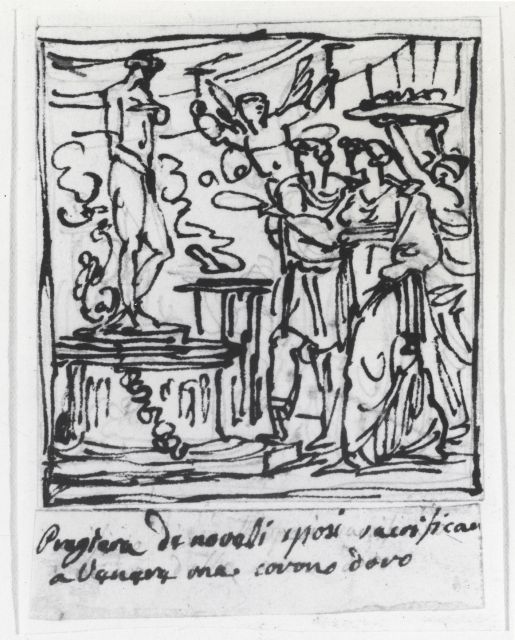 Pregiera de noveli sposi sacrifica
a Venere una corona doro